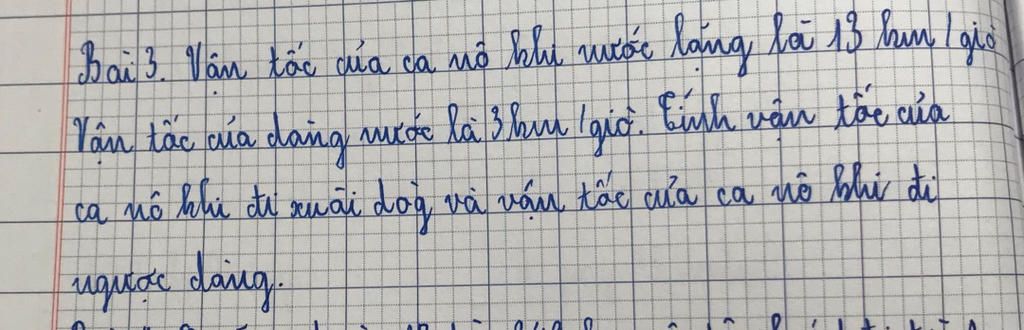 Bài 3. Vận tốc của ca nô khi nước lặng là 13 km/giờ
Vận tốc của dòng nước là 3 km/giờ. Tính vận tốc của
ca nô khi đi xuôi dòg và vận tốc của ca nô khi đi
ngược dòng.